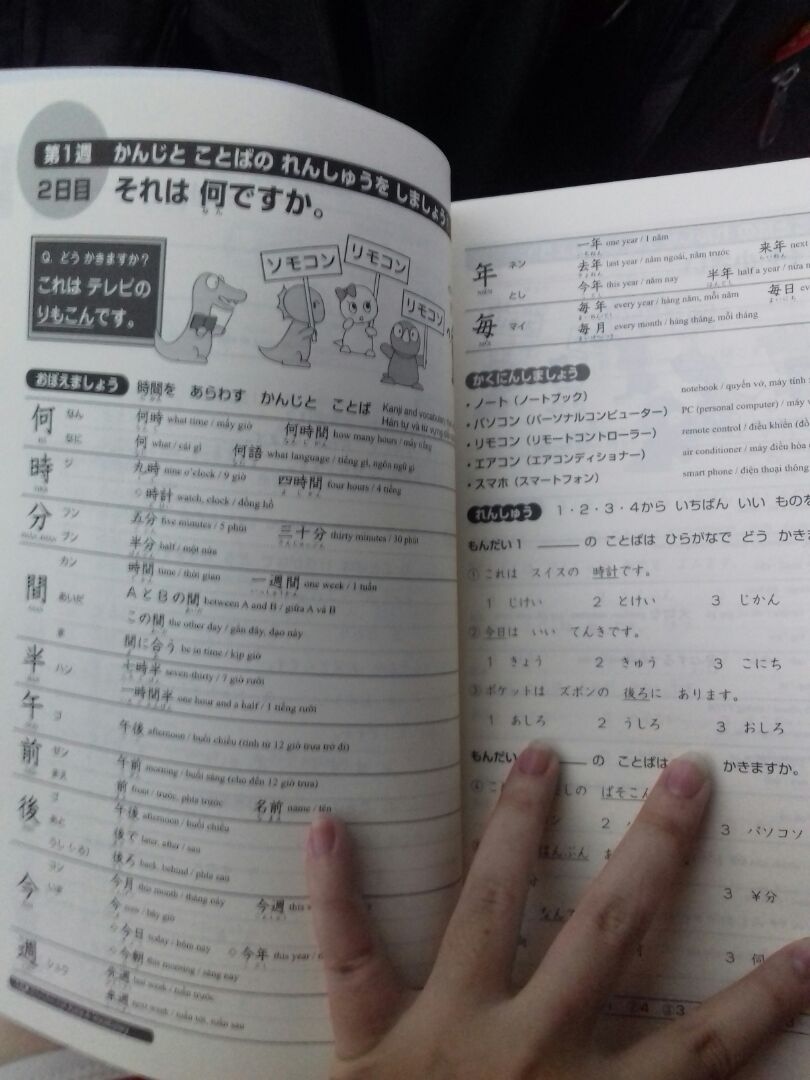 第1週 かんじと ことばの れんしゅうを しましょう
2日目 それは 何ですか。
なん
Q. どう かきますか?
これは テレビの
りもこんです。
ソモコン
リモコン
リモコソ
おぼえましょう 時間を あらわす かんじと ことば
Kanji and vocabulary
Hán tự và từ vựng
何 なん 何時 what time / mấy giờ 何時間 how many hours / mấy tiếng
なに 何 what / cái gì 何語 what language / tiếng gì, ngôn ngữ gì
時 ジ 九時 nine o'clock / 9 giờ 四時間 four hours / 4 tiếng
◇時計 watch, clock / đồng hồ
分 フン 五分 five minutes / 5 phút 三十分 thirty minutes / 30 phút
プン 半分 half / một nửa
間 カン 時間 time / thời gian 一週間 one week / 1 tuần
あいだ AとBの間 between A and B / giữa A và B
この間 the other day / gần đây, dạo này
ま 間に合う be in time / kịp giờ
半 ハン 七時半 seven-thirty / 7 giờ rưỡi
一時間半 one hour and a half / 1 tiếng rưỡi
午 ゴ 午後 afternoon / buổi chiều (tính từ 12 giờ trưa trở đi)
前 ゼン 午前 morning / buổi sáng (cho đến 12 giờ trưa)
まえ 前 front / trước, phía trước 名前 name / tên
後 ゴ 午後 afternoon / buổi chiều
あと 後で later, after / sau
うし(ろ) 後ろ back, behind / phía sau
今 コン 今月 this month / tháng này 今週
いま 今 now / bây giờ
◇今日 today / hôm nay ◇今年 this year
◇今朝 this morning / sáng nay
週 シュウ 先週 last week / tuần trước
来週 next week / tuần tới, tuần sau
年 ネン 一年 one year / 1 năm 来年 next
去年 last year / năm ngoái, năm trước
とし 今年 this year / năm nay 半年 half a year / nửa
毎 マイ 毎年 every year / hàng năm, mỗi năm 毎日
毎月 every month / hàng tháng, mỗi tháng
かくにんしましょう
・ノート(ノートブック) notebook / quyển vở, máy tính
・パソコン(パーソナルコンピューター) PC (personal computer) / máy
・リモコン(リモートコントローラー) remote control / điều khiển
・エアコン(エアコンディショナー) air conditioner / máy điều hòa
・スマホ(スマートフォン) smart phone / điện thoại thông
れんしゅう 1・2・3・4から いちばん いい ものを
もんだい1 ____の ことばは ひらがなで どう かきま
①これは スイスの 時計です。
1 じけい 2 とけい 3 じかん
②今日は いい てんきです。
1 きょう 2 きゅう 3 こにち
③ポケットは ズボンの 後ろに あります。
1 あしろ 2 うしろ 3 おしろ
もんだい ____の ことばは かきますか。
しの ぱそこん
2 3 パソコソ
はんぶん
3 ¥分
なん
3 何